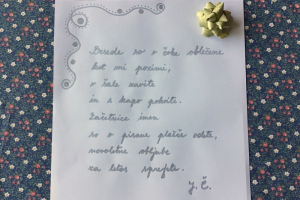 Besede so v čoke oblečene
kot mi pozimi,
v šale zavite
in s kapo pokrite.
Začetnice imen
so v pisane plašče odete,
novoletne obljube
za letos sprejete.
J. Č.